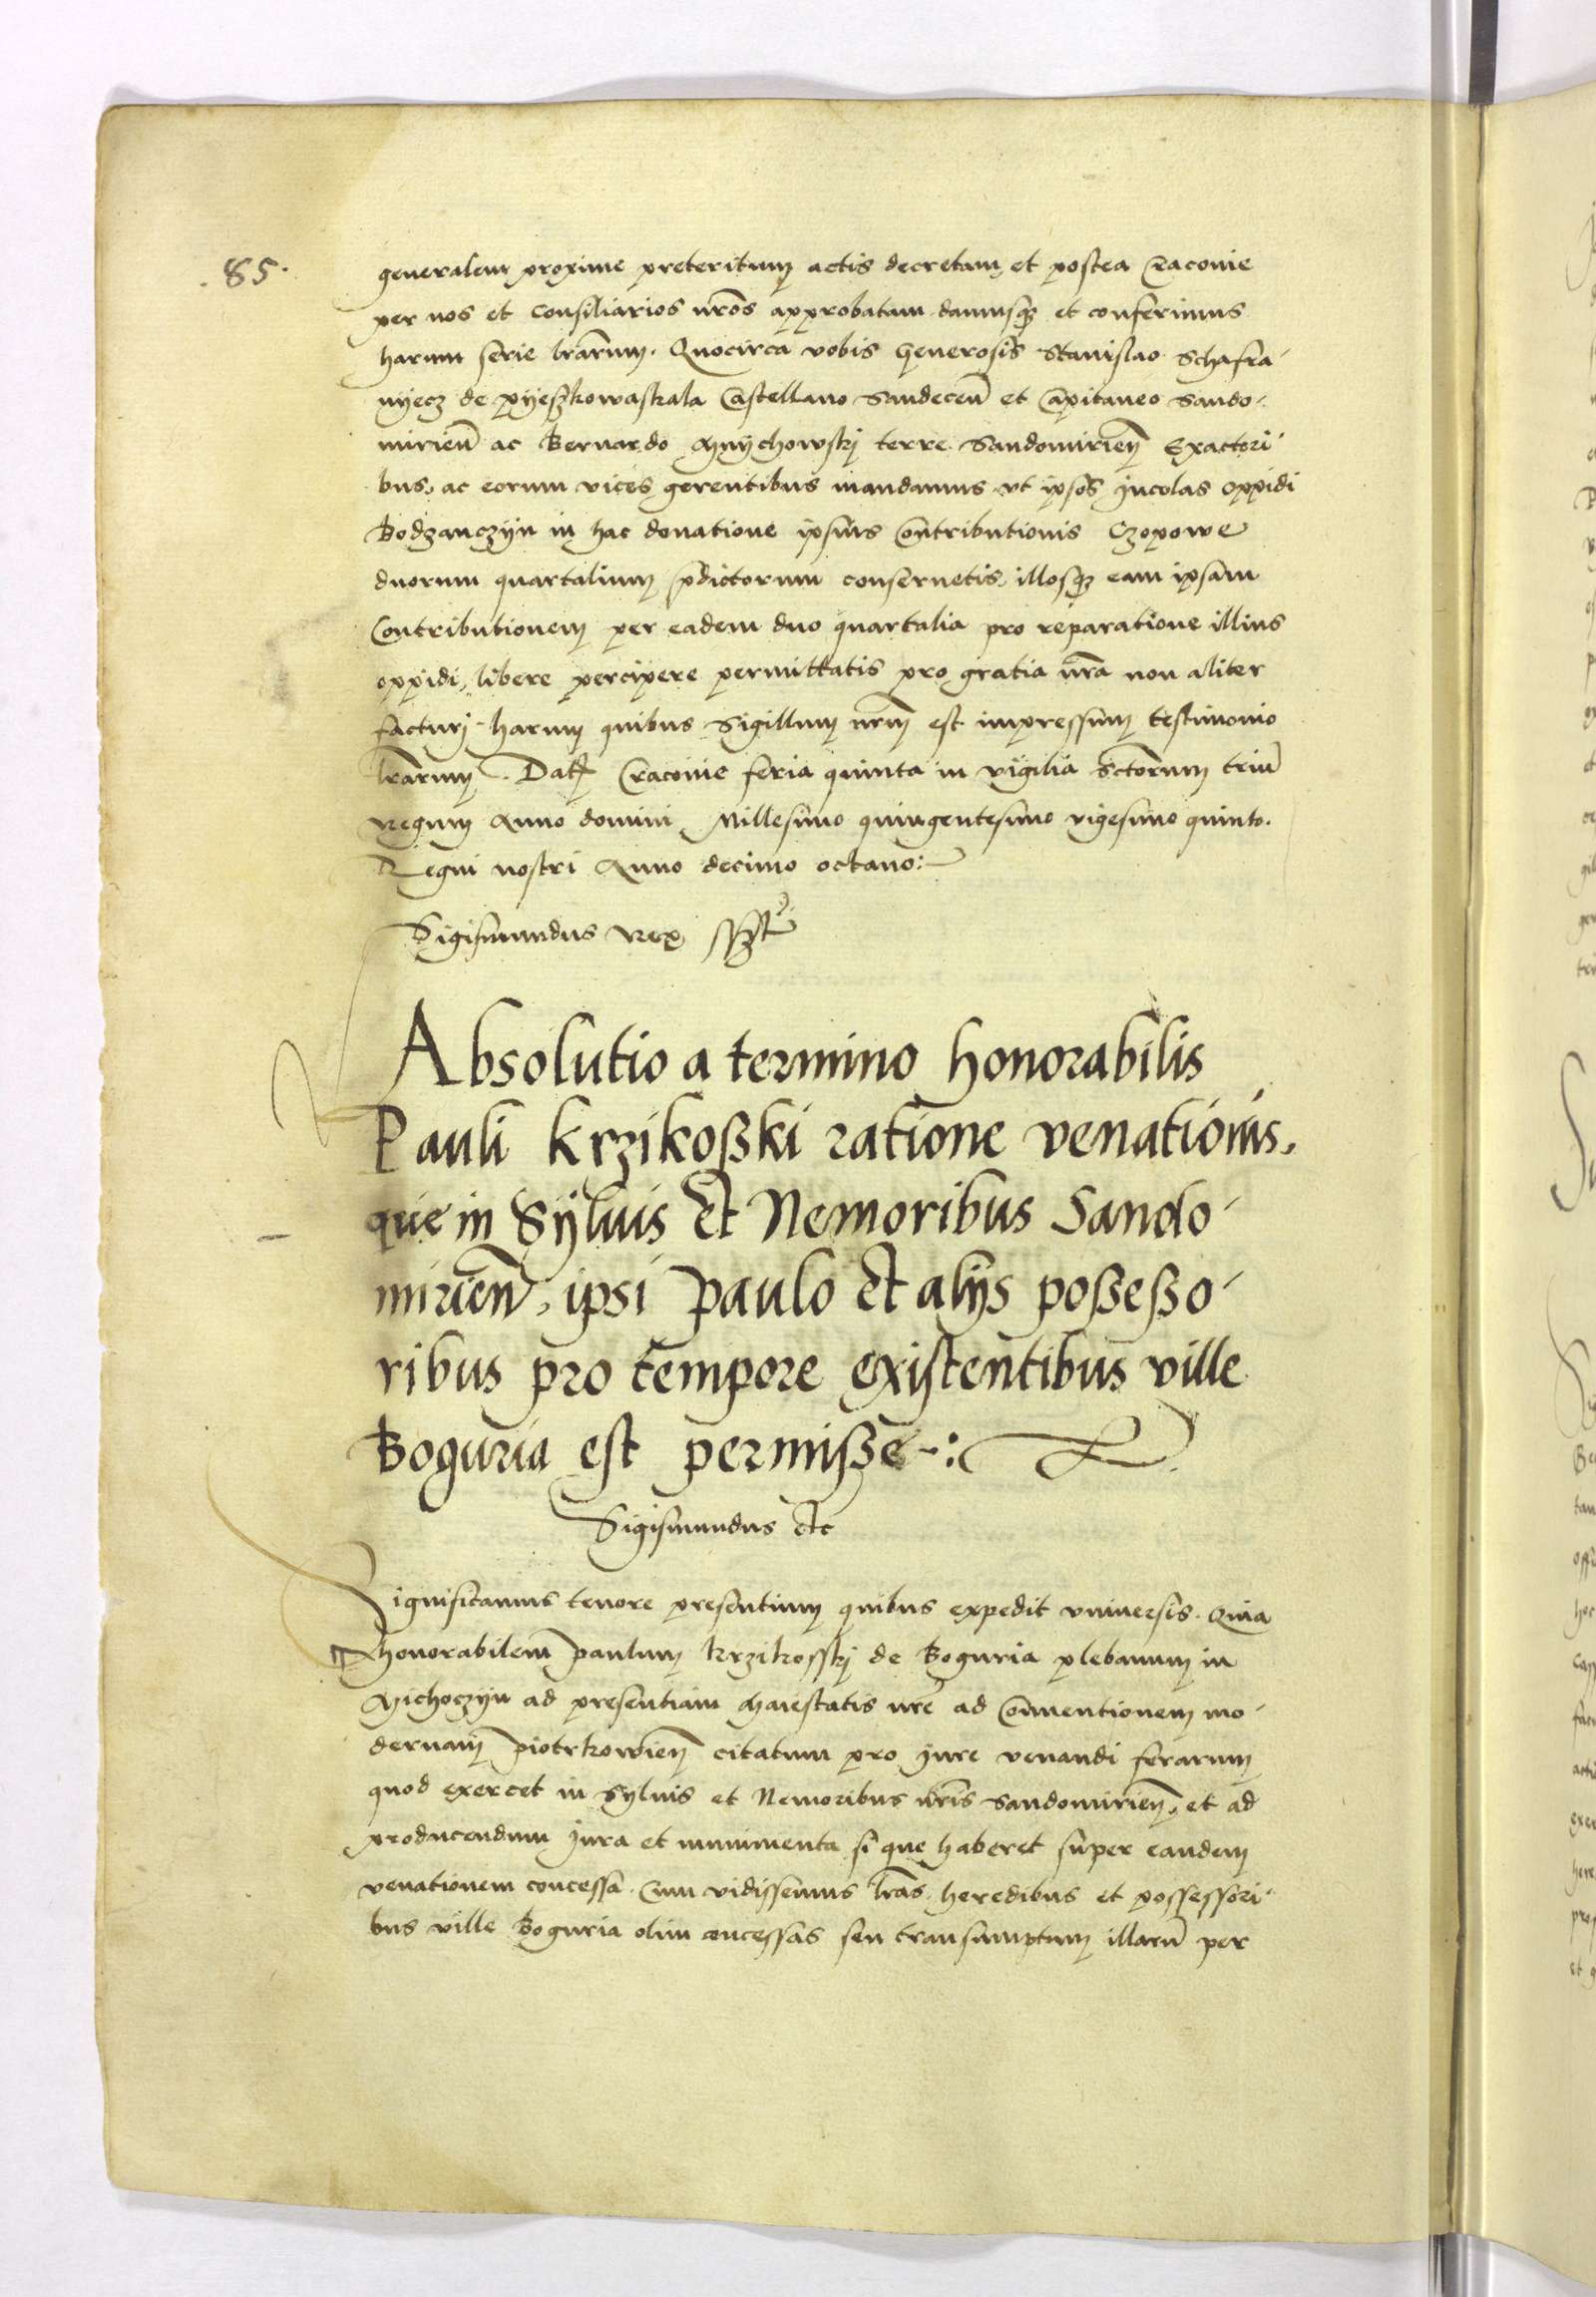 .85.
generalem proxime preteritum actis decretam et postea Cracouie
per nos et consiliarios nros̄ approbatam damusqȝ et conferimus
harum serie lrārum. Quocirca vobis Generosis Stanislao Schafra-
nyecz de Pyeskowaskala Castellano Sandecen̄ et Capitaneo Sando-
mirien̄ ac Bernardo Mnychowskj terre Sandomirien̄ Exactori
bus, ac eorum vices gerentibus mandamus vt ipsos Jncolas oppidi
Bodzanczyn in hac donatione ipsius Contributionis Czopowe
duorum quartalium p̄dictorum conseruetis, illosqȝ eam ipsam
Contributionem per eadem duo quartalia pro reparatione illius
oppidi, libere percipere permittatis pro gratia nrā non aliter
facturj harum quibus Sigillum nrm̄ est impressum testimonio
lrārum. Dat Cracouie feria quinta in vigilia Sctōrum triū
Regum Anno domini Millesimo quingentesimo vigesimo quinto.
Regni nostri Anno decimo octauo:
Sigismundus Rex sst
Absolutio a termino honorabilis
Pauli Krzikoßki ratione venationis,
que in Syluis et Nemoribus Sando-
mirien̄, ipsi Paulo et alijs poßeßo-
ribus pro tempore existentibus ville
Boguria est permiße-:
Sigismundus etc
Significamus tenore presentium quibus expedit vniuersis. Quia
honorabilem Paulum Krzikosskj de Boguria plebanum in
Michoczyn ad presentiam Maiestatis nrē ad Conuentionem mo-
dernam Piotrkowien̄ citatum pro Jure venandi ferarum
quod exercet in Syluis et Nemoribus nrīs Sandomirien̄, et ad
producendum Jura et munimenta si que haberet super eandem
venationem concessa. Cum vidissemus lrās heredibus et possessori-
bus ville Boguria olim concessas seu transumptum illarū per